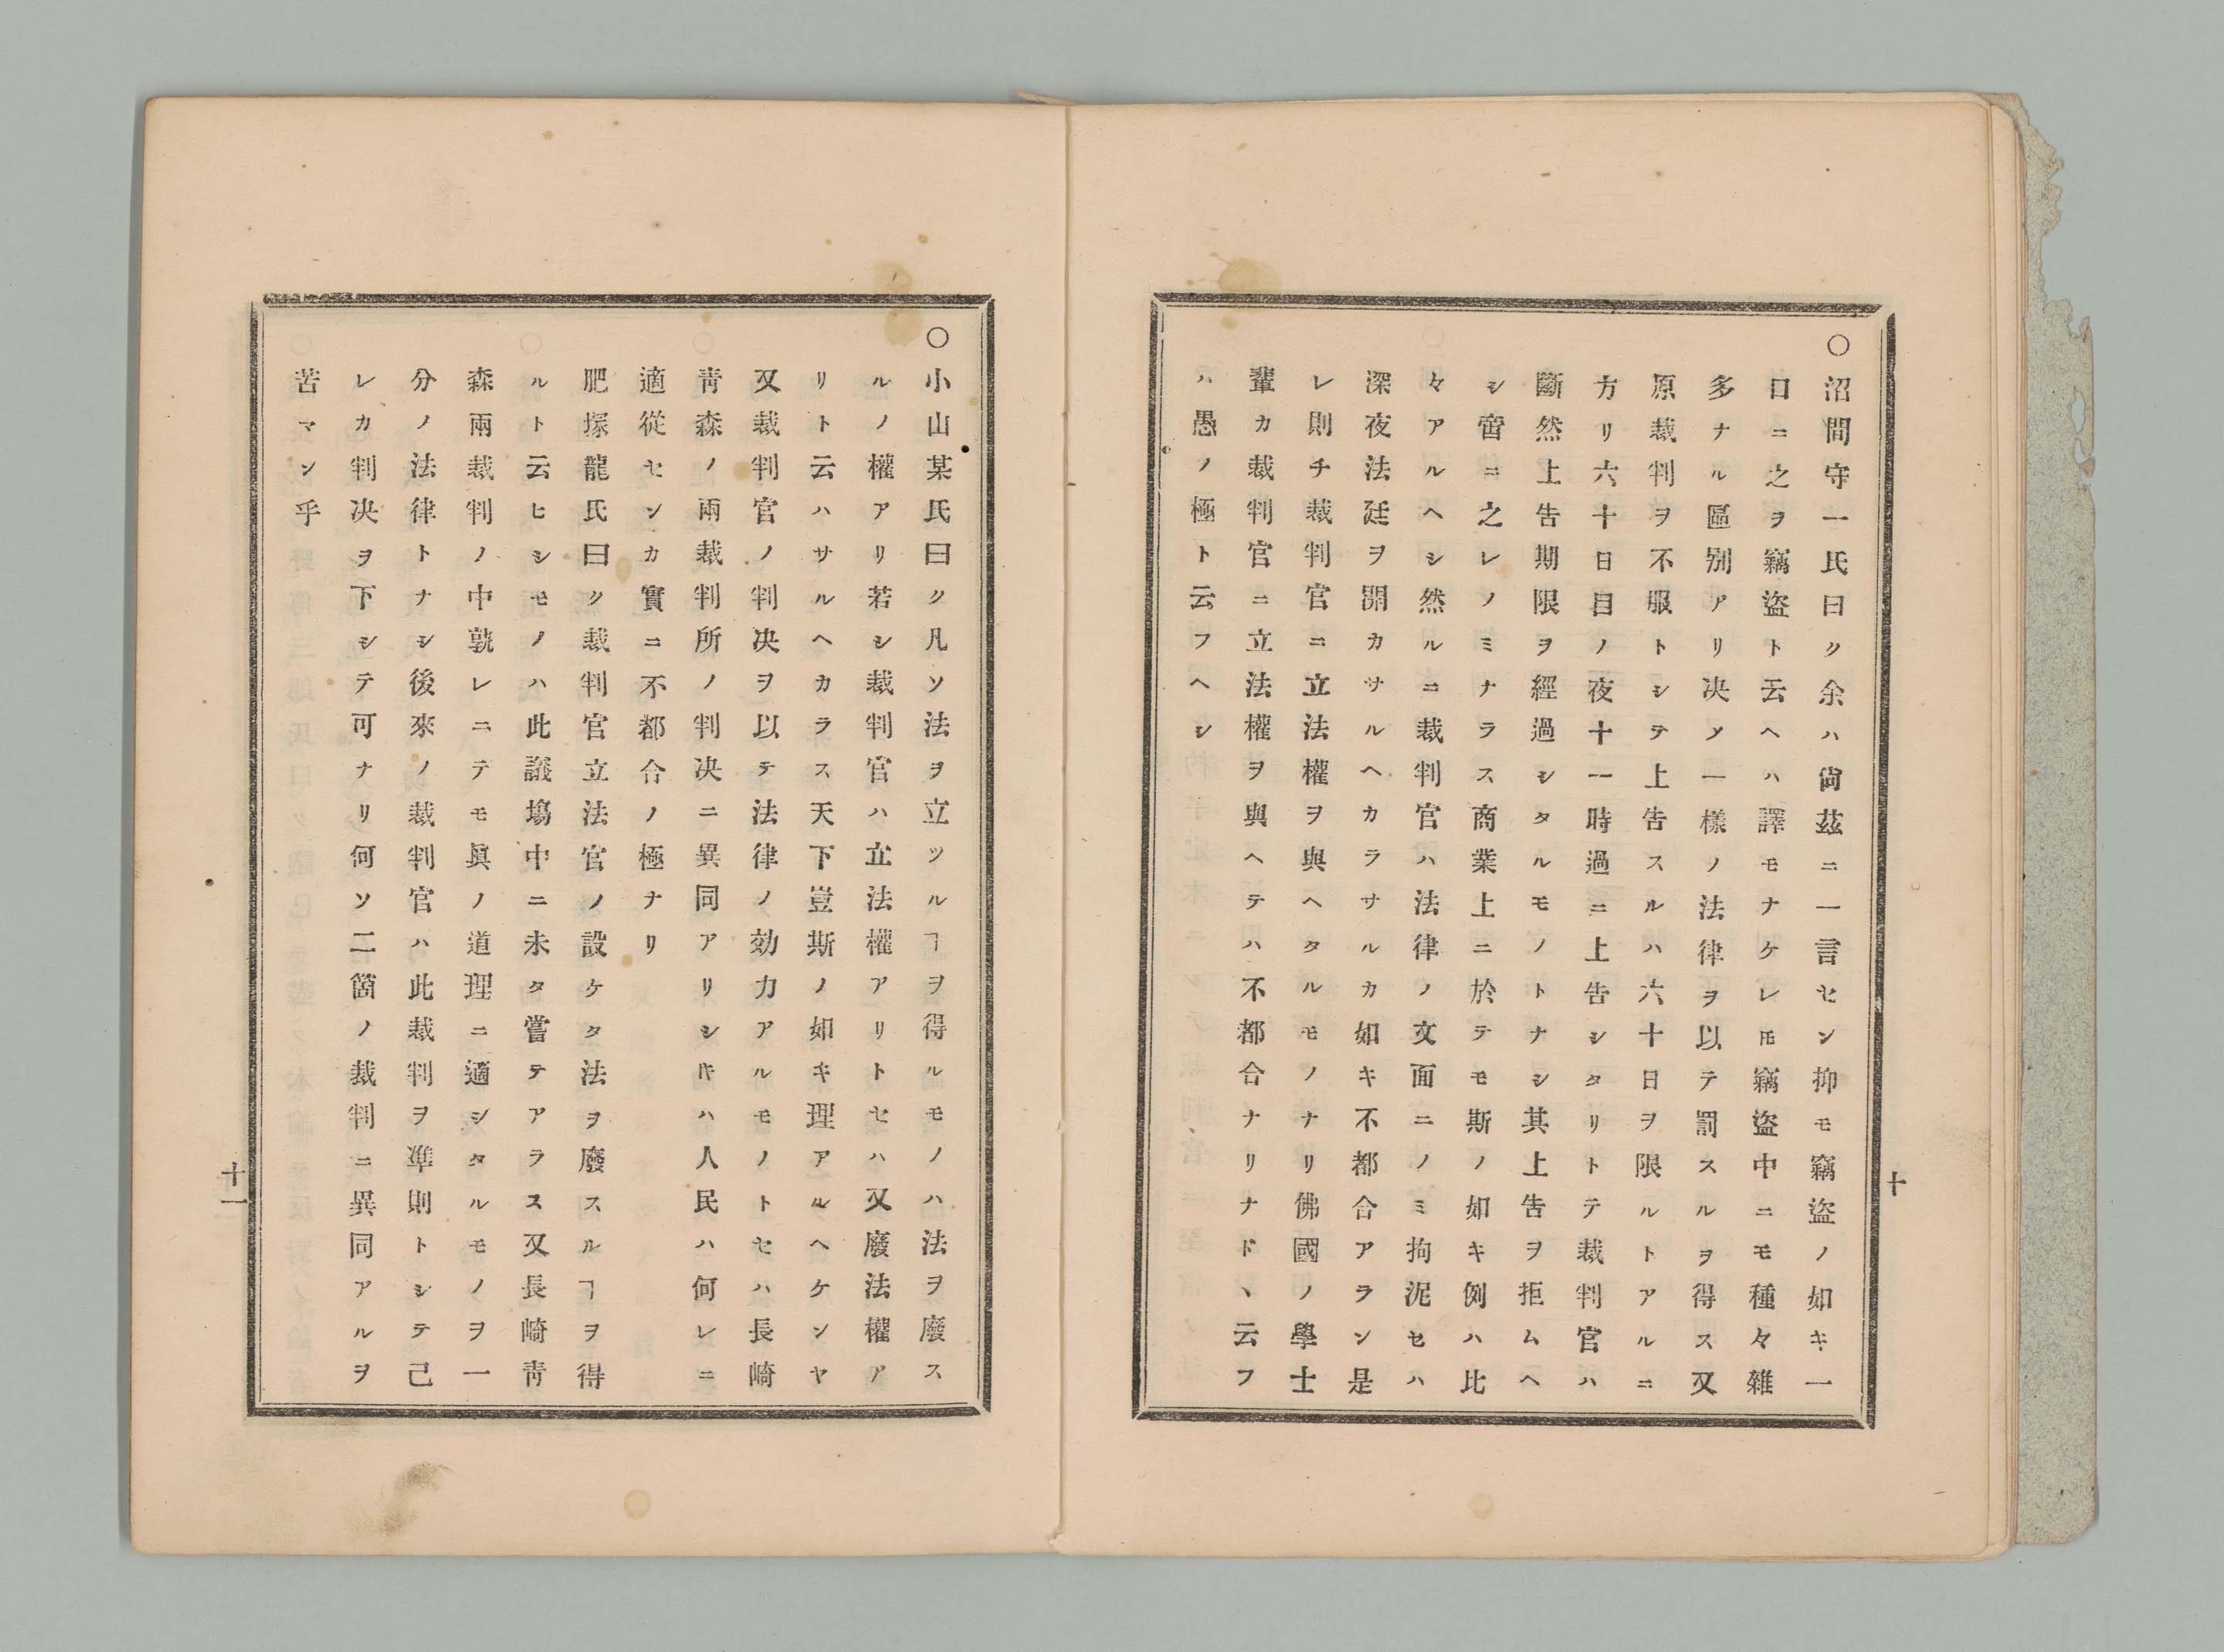 ○沼間守一氏曰ク余ハ尙茲ニ一言セン抑モ竊盜ノ如キ一
口ニ之ヲ竊盜ト云ヘハ譯モナケレ𪜈竊盜中ニモ種々雜
多ナル區別アリ決メ一樣ノ法律ヲ以テ罰スルヲ得ス又
原裁判ヲ不服トシテ上告スルハ六十日ヲ限ルトアルニ
方リ六十日目ノ夜十一時過ニ上告シタリトテ裁判官ハ
斷然上告期限ヲ經過シタルモノトナシ其上告ヲ拒ムヘ
シ啻ニ之レノミナラス商業上ニ於テモ斯ノ如キ例ハ比
々アルヘシ然ルニ裁判官ハ法律ノ文面ニノミ拘泥セハ
深夜法廷ヲ開カサルヘカラサルカ如キ不都合アラン是
レ則チ裁判官ニ立法權ヲ與ヘタルモノナリ佛國ノ學士
輩カ裁判官ニ立法權ヲ與ヘテハ不都合ナリナドヽ云フ
ハ愚ノ極ト云フヘシ
十
○小山某氏曰ク凡ソ法ヲ立ツルヿヲ得ルモノハ法ヲ廢ス
ルノ權アリ若シ裁判官ハ立法權アリトセハ又廢法權ア
リト云ハサルヘカラス天下豈斯ノ如キ理アルヘケンヤ
又裁判官ノ判决ヲ以テ法律ノ効力アルモノトセハ長崎
靑森ノ兩裁判所ノ判决ニ異同アリシ𬼀ハ人民ハ何レニ
適從センカ實ニ不都合ノ極ナリ
肥塚龍氏曰ク裁判官立法官ノ設ケタ法ヲ廢スルヿヲ得
ルト云ヒシモノハ此議塲中ニ未タ嘗テアラス又長崎靑
森兩裁判ノ中孰レニテモ眞ノ道理ニ適シタルモノヲ一
分ノ法律トナシ後來ノ裁判官ハ此裁判ヲ準則トシテ己
レカ判决ヲ下シテ可ナリ何ソ二箇ノ裁判ニ異同アルヲ
苦マン乎
十一